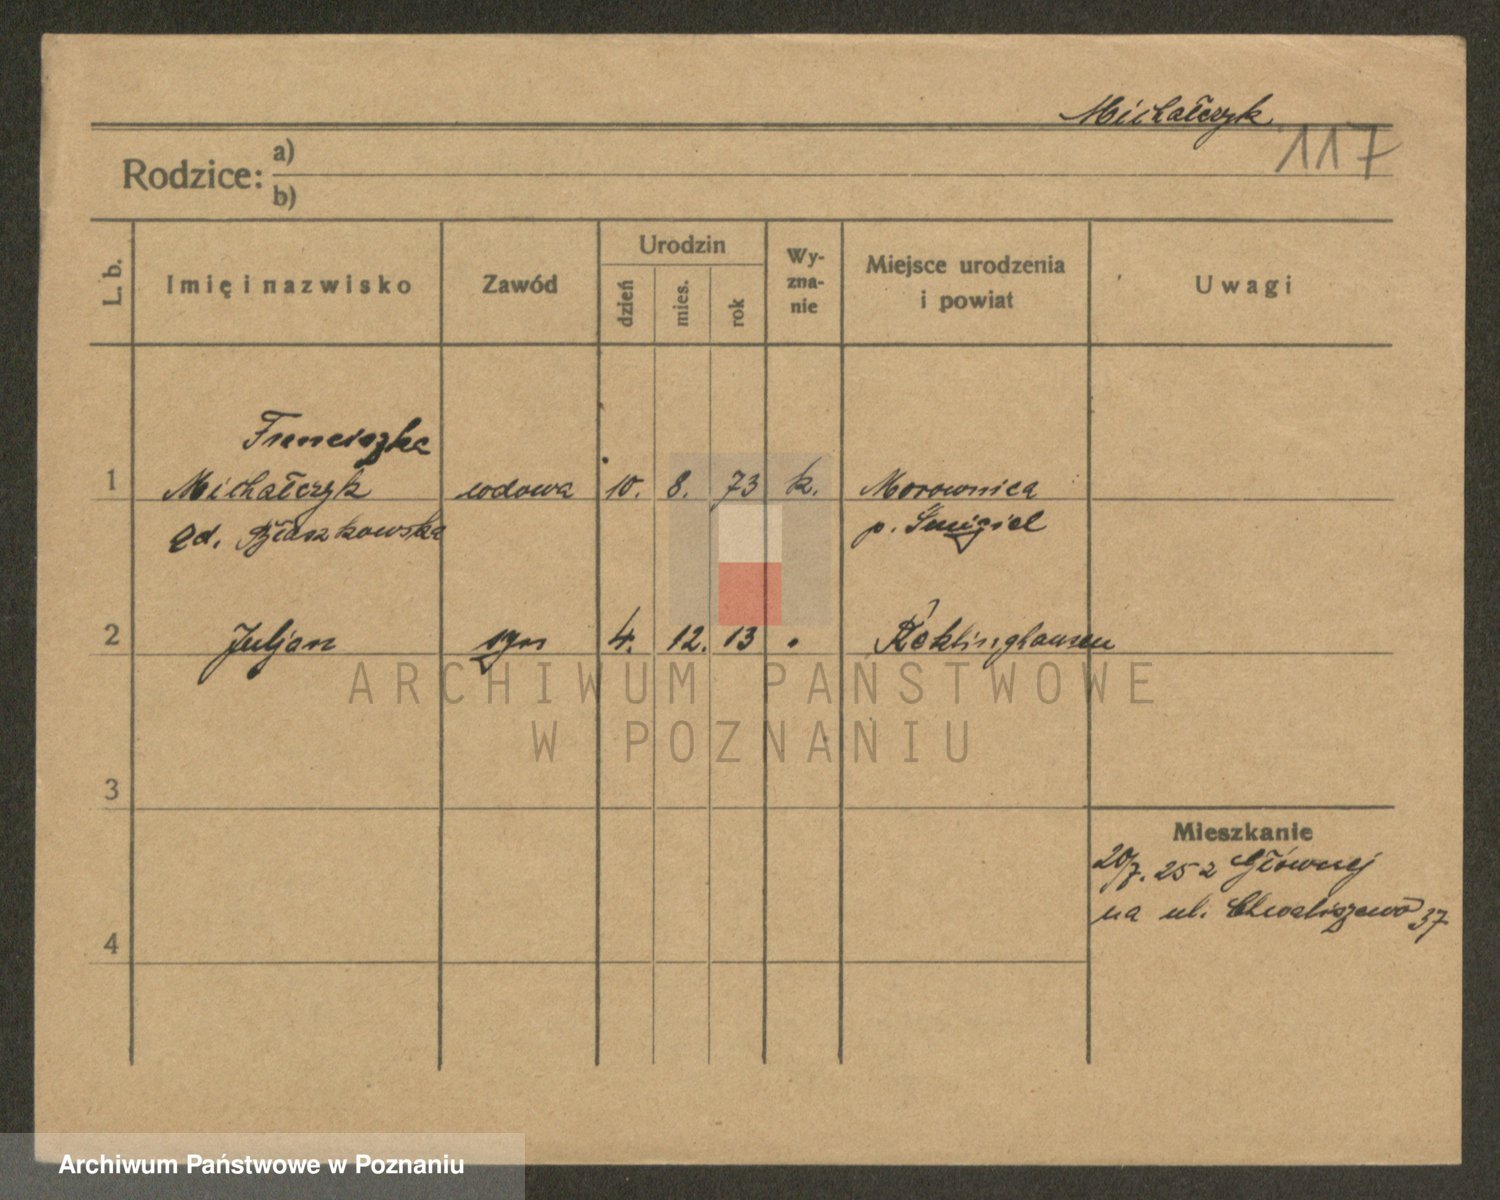 Michałczyk
117
Rodzice:
a)
b)
L. b.
Imię i nazwisko
Zawód
Urodzin
dzień
mies.
rok
Wy-
zna-
nie
Miejsce urodzenia
i powiat
Uwagi
Franciszka
1 Michałczyk wdowa 10. 8. 73 k. Morownica
Błaszkowska p. Śmigiel
2 Juljan syn 4. 12. 13 Reklinghausen
ARCHIWUM PAŃSTWOWE
W POZNANIU
3
Mieszkanie
20/7. 25 z Głównej
na ul. Chwaliszewo 37
4
Archiwum Państwowe w Poznaniu